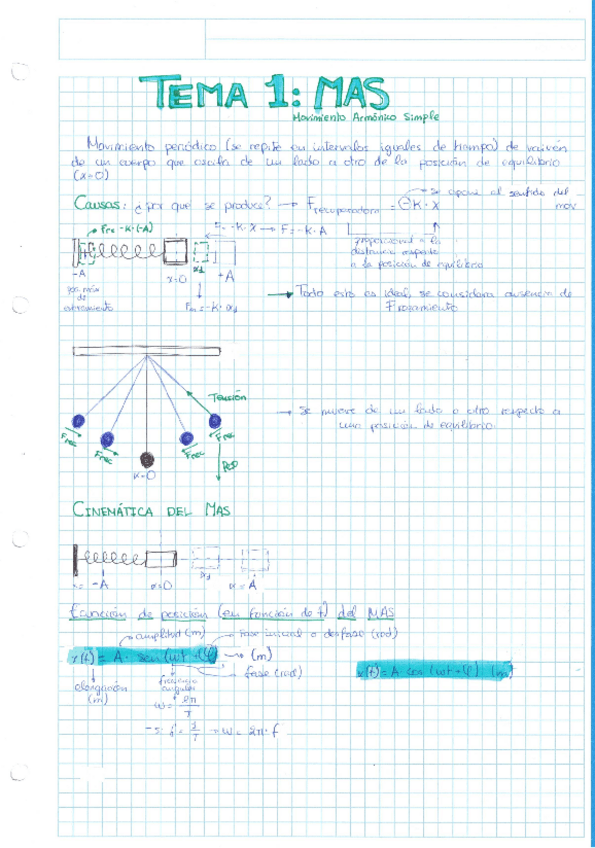 TEMA 1: MAS
Movimiento Armónico Simple
Movimiento periódico (se repite en intervalos iguales de tiempo) de vaivén
de un cuerpo que oscila de un lado a otro de la posición de equilibrio
(x=0)
Causas: ¿por qué se produce? → Frecuperadora = -K·x
→ se opone al sentido del mov.
Fre = -K·(-A)
= -K·x → F = -K·A
proporcional a la
distancia respecto
a la posición de equilibrio
-A
x=0
x1
+A
de
estiramiento
= -K·x1
→ Todo esto es ideal, se considera ausencia de
Rozamiento
Tensión
→ Se mueve de un lado a otro respecto a
una posición de equilibrio.
Frec
Frec
Frec
Frec
x=0
CINEMÁTICA DEL MAS
x = -A
x=0
x1
x = A
Función de posición (en función de t) del MAS
amplitud (m)
fase inicial o desfase (rad)
x(t) = A · sen (ωt + φ) → (m)
x(t) = A cos (ωt + φ) (m)
fase (rad)
elongación
(m)
frecuencia
angular
ω = 2π/T
f = 1/T → ω = 2π·f